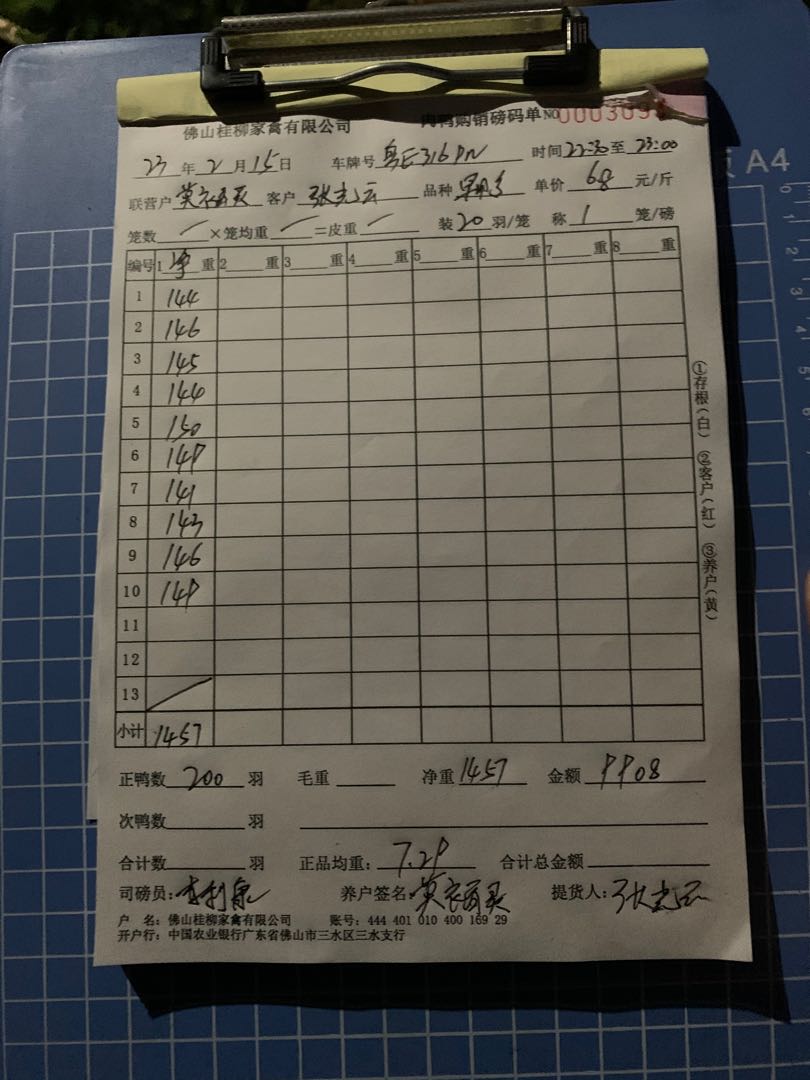 佛山桂柳家禽有限公司 肉鸭购销磅码单 NO 000309
23 年 2 月 15 日 车牌号 粤E316 时间 22:30 至 23:00
联营户 客户 张志云 品种 单价 68 元/斤
笼数 ×笼均重 =皮重 装 20 羽/笼 称 1 笼/磅
编号 1 净 重 2 重 3 重 4 重 5 重 6 重 7 重 8 重
1 144
2 146
3 145
4 144
5 150
6 149
7 141
8 143
9 146
10 149
11
12
13
小计 1457
正鸭数 200 羽 毛重 净重 1457 金额 9908
次鸭数 羽
合计数 羽 正品均重: 7.29 合计总金额
司磅员: 养户签名: 提货人: 张志云
户 名: 佛山桂柳家禽有限公司 账号: 444 401 010 400 169 29
开户行: 中国农业银行广东省佛山市三水区三水支行
①存根(白) ②客户(红) ③养户(黄)
A4
0
1
2
3
4
5
6